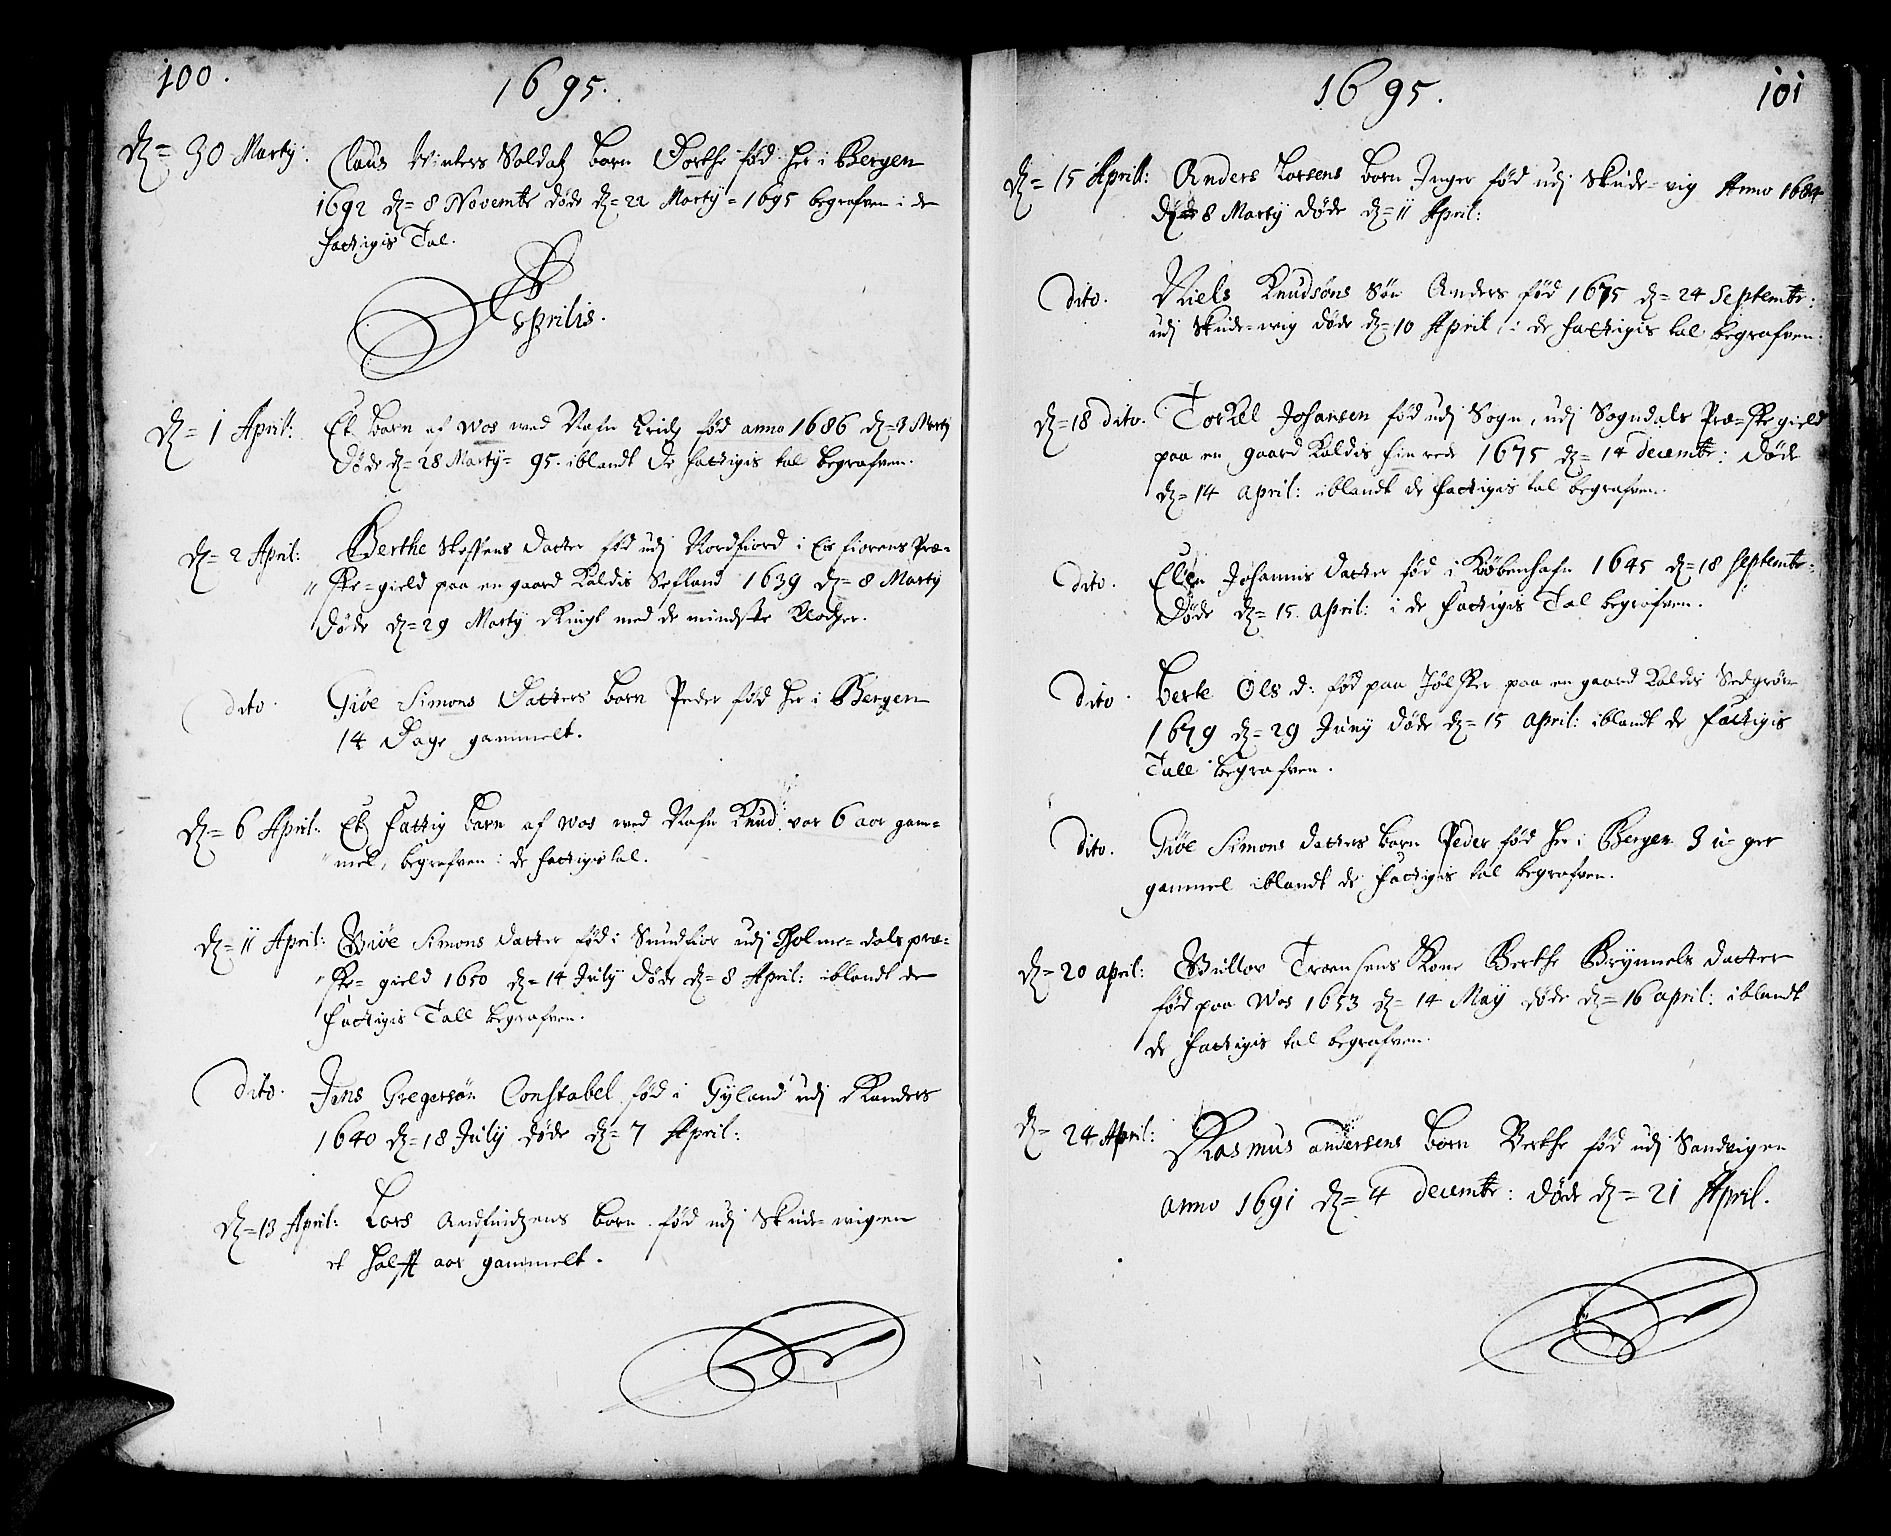 100.
1695.
Dz= 30 Marty: Claus Winters Soldatz barn Dorthe fød her i Bergen
1692 dz= 8 Novembr døde dz= 22 Marty = 1695 begrafven i de
fattigis Tal.
Aprilis.
Dz= 1 April: Et barn af Wos med Nafn fød anno 1686 dz= 8 Marty
døde dz= 28 Marty= 95. iblandt de fattigis tal begrafven.
Dz= 2 April: Berthe Steffens datter fød udj Nordfiord i Eis fiorens Præ=
ste=gield paa en gaard kaldis Sefland 1639 dz= 8 Marty
døde dz= 29 Marty Ringt med de mindste Klocher.
dito. Giøe Simons Datters barn Peder fød her i Bergen
14 Dage gammelt.
Dz= 6 April: Et fattig barn af Wos med Nafn Knud var 6 aar gam=
mel, begrafven i de fattigis tal.
Dz= 11 April: Giøe Simons datter fød i Sundfior udj Holme=dals præ=
ste=gield 1650 dz= 14 July døde dz= 8 April: iblandt de
fattigis Tall begrafven.
Dito. Jens Gregersøn Constabel fød i Gyland udj Randers
1640 dz= 18 July døde dz= 7 April:
Dz= 13 April: Lars Andfindzens barn fød udj Skude=wigen
et halft aar gammelt.
1695.
101
Dz= 15 April: Anders Larsens barn Inger fød udj Skude=vig Anno 1684
8 Marty døde dz= 11 April:
Dito. Niels Knudsøns Søn Anders fød 1675 dz= 24 Septembr:
udj Skude=wig døde dz= 10 April i de fattigis tal begrafven:
Dz= 18 dito. Torkel Johansen fød udj Sogn, udj Sogndals Præ=stegield
paa en gaard kaldis 1675 dz= 14 decembr: døde
dz= 14 april: iblandt de fattigis tal begrafven.
dito. Ellen Johannis datter fød i Københafn 1645 dz= 18 Septembr=
døde dz= 15. april: i de fattigis Tal begrafven.
dito. berte Ols d: fød paa Jølster paa en gaard kaldis
1679 dz= 29 Juny døde dz= 15 april: iblandt de fattigis
Tall begrafven.
Dito. Giøe Simons datters barn Peder fød her i Bergen 3 uger
gammel iblandt de fattigis tal begrafven.
Dz= 20 april: Gullov Troensens Kone Berthe Brynnels datter
fød paa Wos 1653 dz= 14 May døde dz= 16 april: iblandt
de fattigis tal begrafven.
Dz= 24 April: Rasmus andersens barn Berthe fød udj Sandvigen
anno 1691 dz= 4 decembr: døde dz= 21 April.